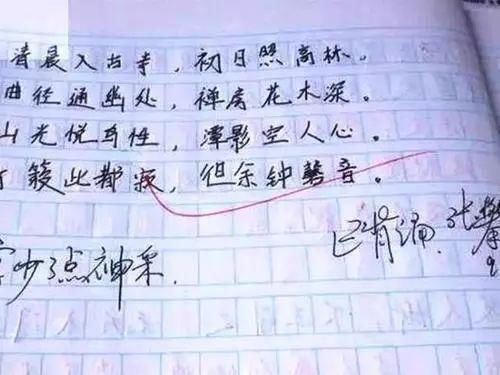 清晨入古寺，初日照高林。
曲径通幽处，禅房花木深。
山光悦鸟性，潭影空人心。
此都寂，但余钟磬音。
已背诵.张
字少了点神采.